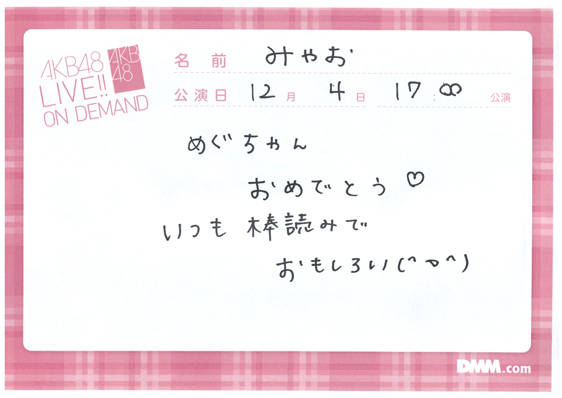 AKB48
LIVE!!
ON DEMAND
AKB
48
名前 みやお
公演日 12月 4日 17:00 公演
めぐちゃん
おめでとう♡
いつも棒読みで
おもしろい(^o^)
DMM.com